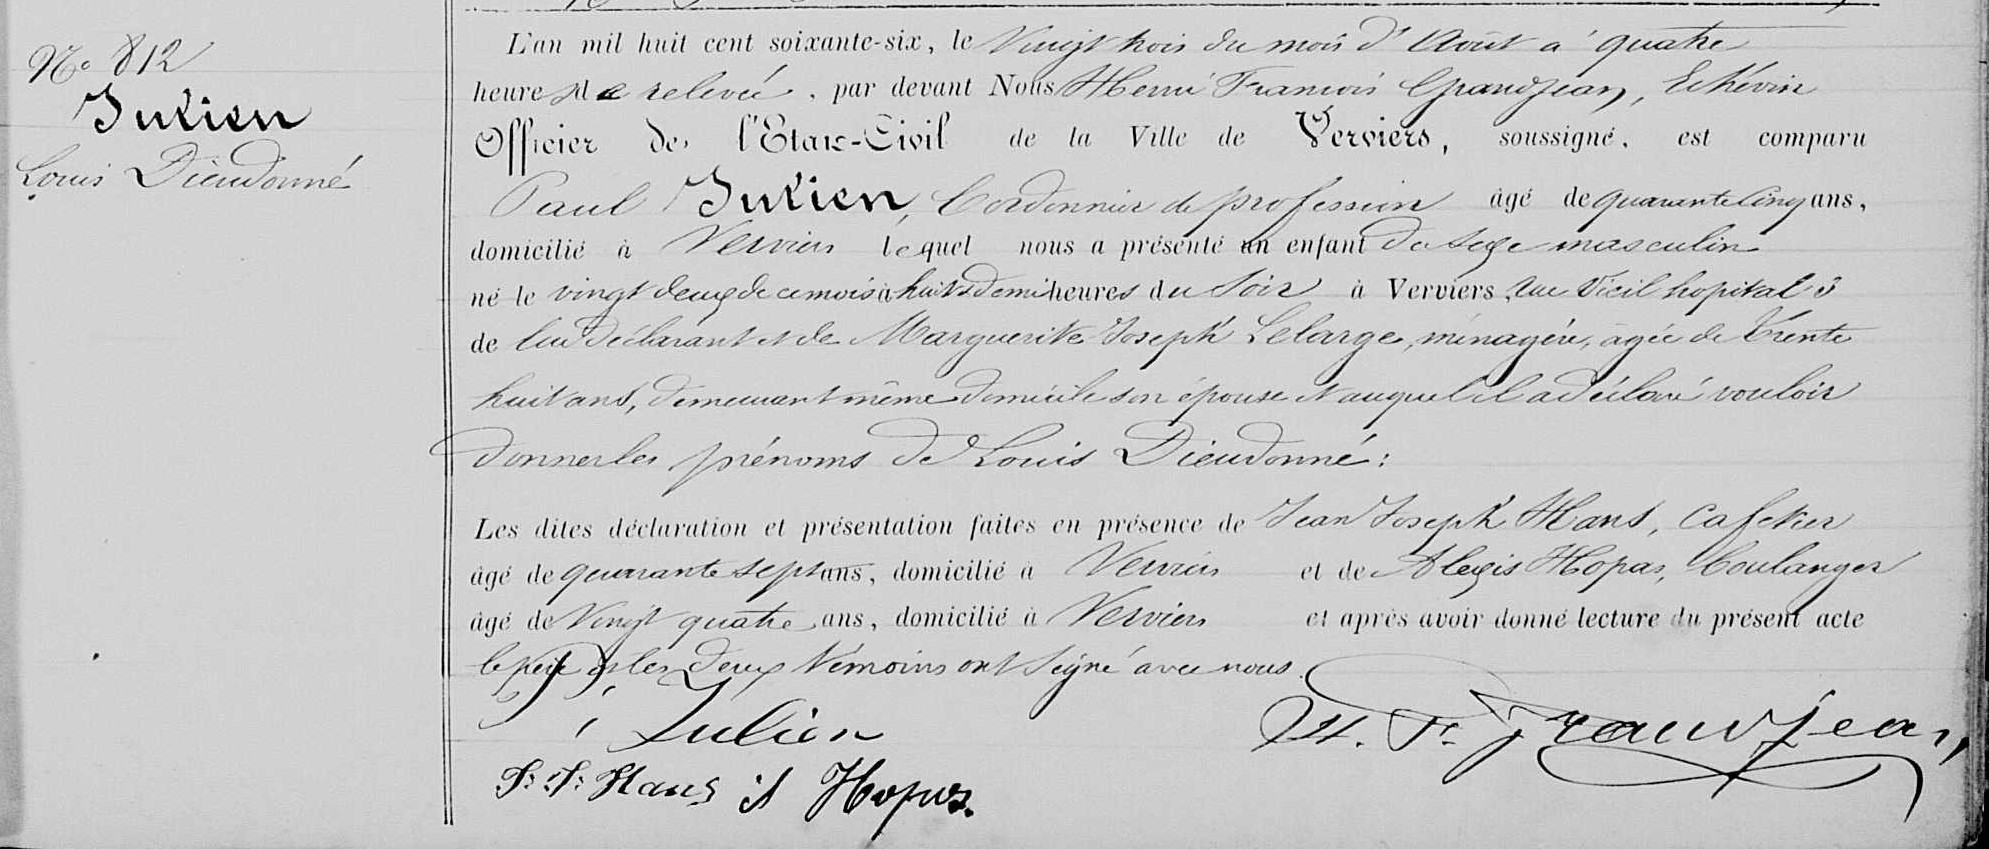 No 812
Julien
Louis Dieudonné
L'an mil huit cent soixante-six, le Vingt trois du mois d'Août a quatre
heures de relevée, par devant Nous Henri François Grandjean, Echevin
Officier de l'Etat-Civil de la Ville de Verviers, soussigné, est comparu
Paul Julien, Cordonnier de profession âgé de quarante cinq ans,
domicilié à Verviers lequel nous a présenté un enfant de sexe masculin
né le vingt deux de ce mois à huit & demi heures du Soir à Verviers, rue Vieil hopital 3
de lui déclarant et de Marguerite Joseph Lelarge, ménagère, agée de trente
huit ans, demeurant même domicile son épouse et auquel il a déclaré vouloir
donner les prénoms de Louis Dieudonné:
Les dites déclaration et présentation faites en présence de Jean Joseph Hans, Cafetier
âgé de quarante sept ans, domicilié à Verviers et de Alexis Hopas, boulanger
âgé de Vingt quatre ans, domicilié à Verviers et après avoir donné lecture du présent acte
le père et les deux témoins ont signé avec nous.
Julien
H. F. Grandjean
J. J. Hans A Hopas.